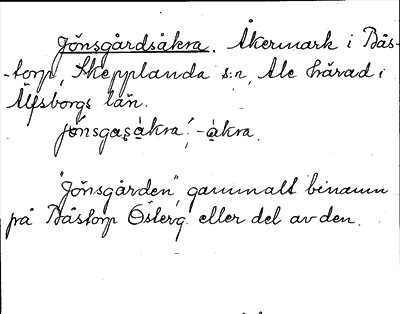 Jönsgårdsåkra. Åkermark i Bås-
-torp, Skepplanda s:n, Ale härad i
Älfsborgs län.
jönsgaşàkra, -àkra.
"Jönsgården", gammalt binamn
på Båstorp Österg. eller del av den.